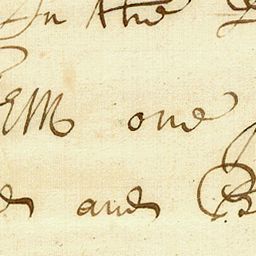 In the
EM one
and B